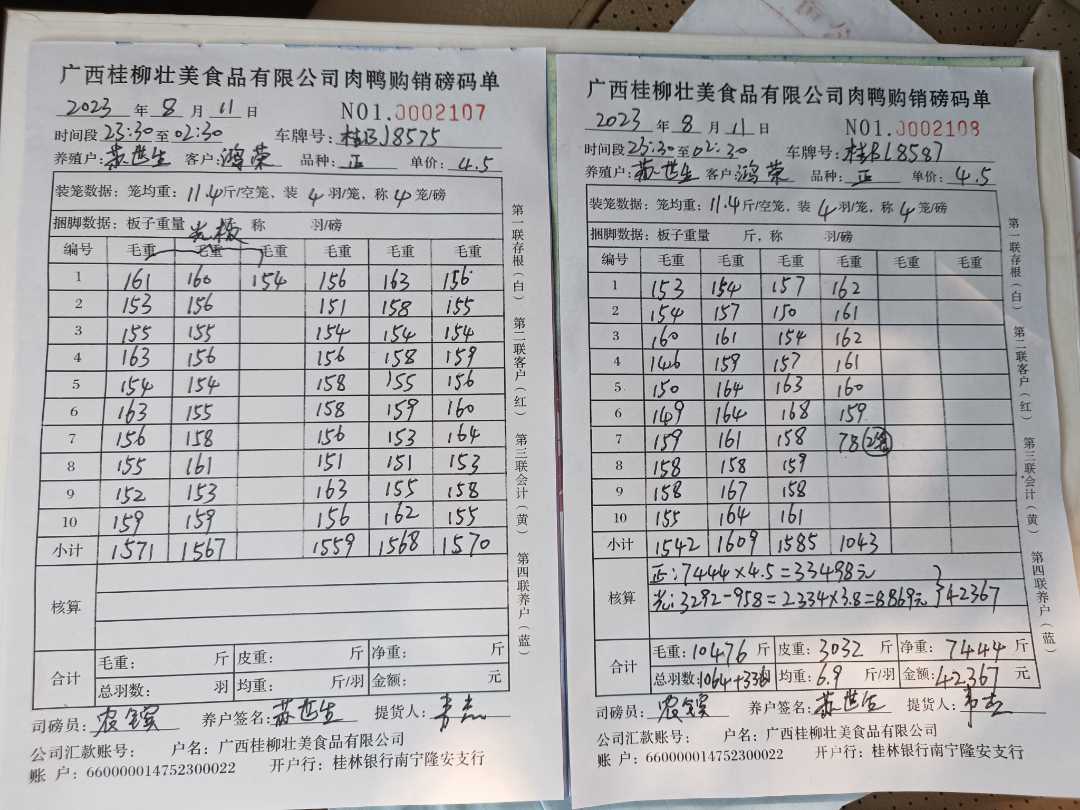 广西桂柳壮美食品有限公司肉鸭购销磅码单
2023 年 8 月 11 日 NO1.0002107
时间段 23:30 至 02:30 车牌号: 桂BJ8575
养殖户: 苏世生 客户: 鸿荣 品种: 正 单价: 4.5
装笼数据: 笼均重: 11.4 斤/空笼, 装 4 羽/笼, 称 4 笼/磅
捆脚数据: 板子重量 光板 称 羽/磅
编号 毛重 毛重 毛重 毛重 毛重 毛重
1 161 160 154 156 163 156
2 153 156 151 158 155
3 155 155 154 154 154
4 163 156 156 158 159
5 154 154 158 155 156
6 163 155 158 159 160
7 156 158 156 153 164
8 155 161 151 151 153
9 152 153 163 155 158
10 159 159 156 162 155
小计 1571 1567 1559 1568 1570
核算
合计 毛重: 斤 皮重: 斤 净重: 斤
总羽数: 羽 均重: 斤/羽 金额: 元
司磅员: 养户签名: 苏世生 提货人:
公司汇款账号: 户名: 广西桂柳壮美食品有限公司
账 户: 660000014752300022 开户行: 桂林银行南宁隆安支行
第一联存根(白) 第二联客户(红) 第三联会计(黄) 第四联养户(蓝)
广西桂柳壮美食品有限公司肉鸭购销磅码单
2023 年 8 月 11 日 NO1.0002108
时间段 23:30 至 02:30 车牌号: 桂BL8587
养殖户: 苏世生 客户: 鸿荣 品种: 正 单价: 4.5
装笼数据: 笼均重: 11.4 斤/空笼, 装 4 羽/笼, 称 4 笼/磅
捆脚数据: 板子重量 斤, 称 羽/磅
编号 毛重 毛重 毛重 毛重 毛重 毛重
1 153 154 157 162
2 154 157 150 161
3 160 161 154 162
4 146 159 157 161
5 150 164 163 160
6 149 164 168 159
7 159 161 158 78
8 158 158 159
9 158 167 158
10 155 164 161
小计 1542 1609 1585 1043
核算 正:7444×4.5=33498元
光:3292-958=2334×3.8=8869元 }42367
合计 毛重: 10476 斤 皮重: 3032 斤 净重: 7444 斤
总羽数: 1064+336 均重: 6.9 斤/羽 金额: 42367 元
司磅员: 养户签名: 苏世生 提货人:
公司汇款账号: 户名: 广西桂柳壮美食品有限公司
账 户: 660000014752300022 开户行: 桂林银行南宁隆安支行
第一联存根(白) 第二联客户(红) 第三联会计(黄) 第四联养户(蓝)